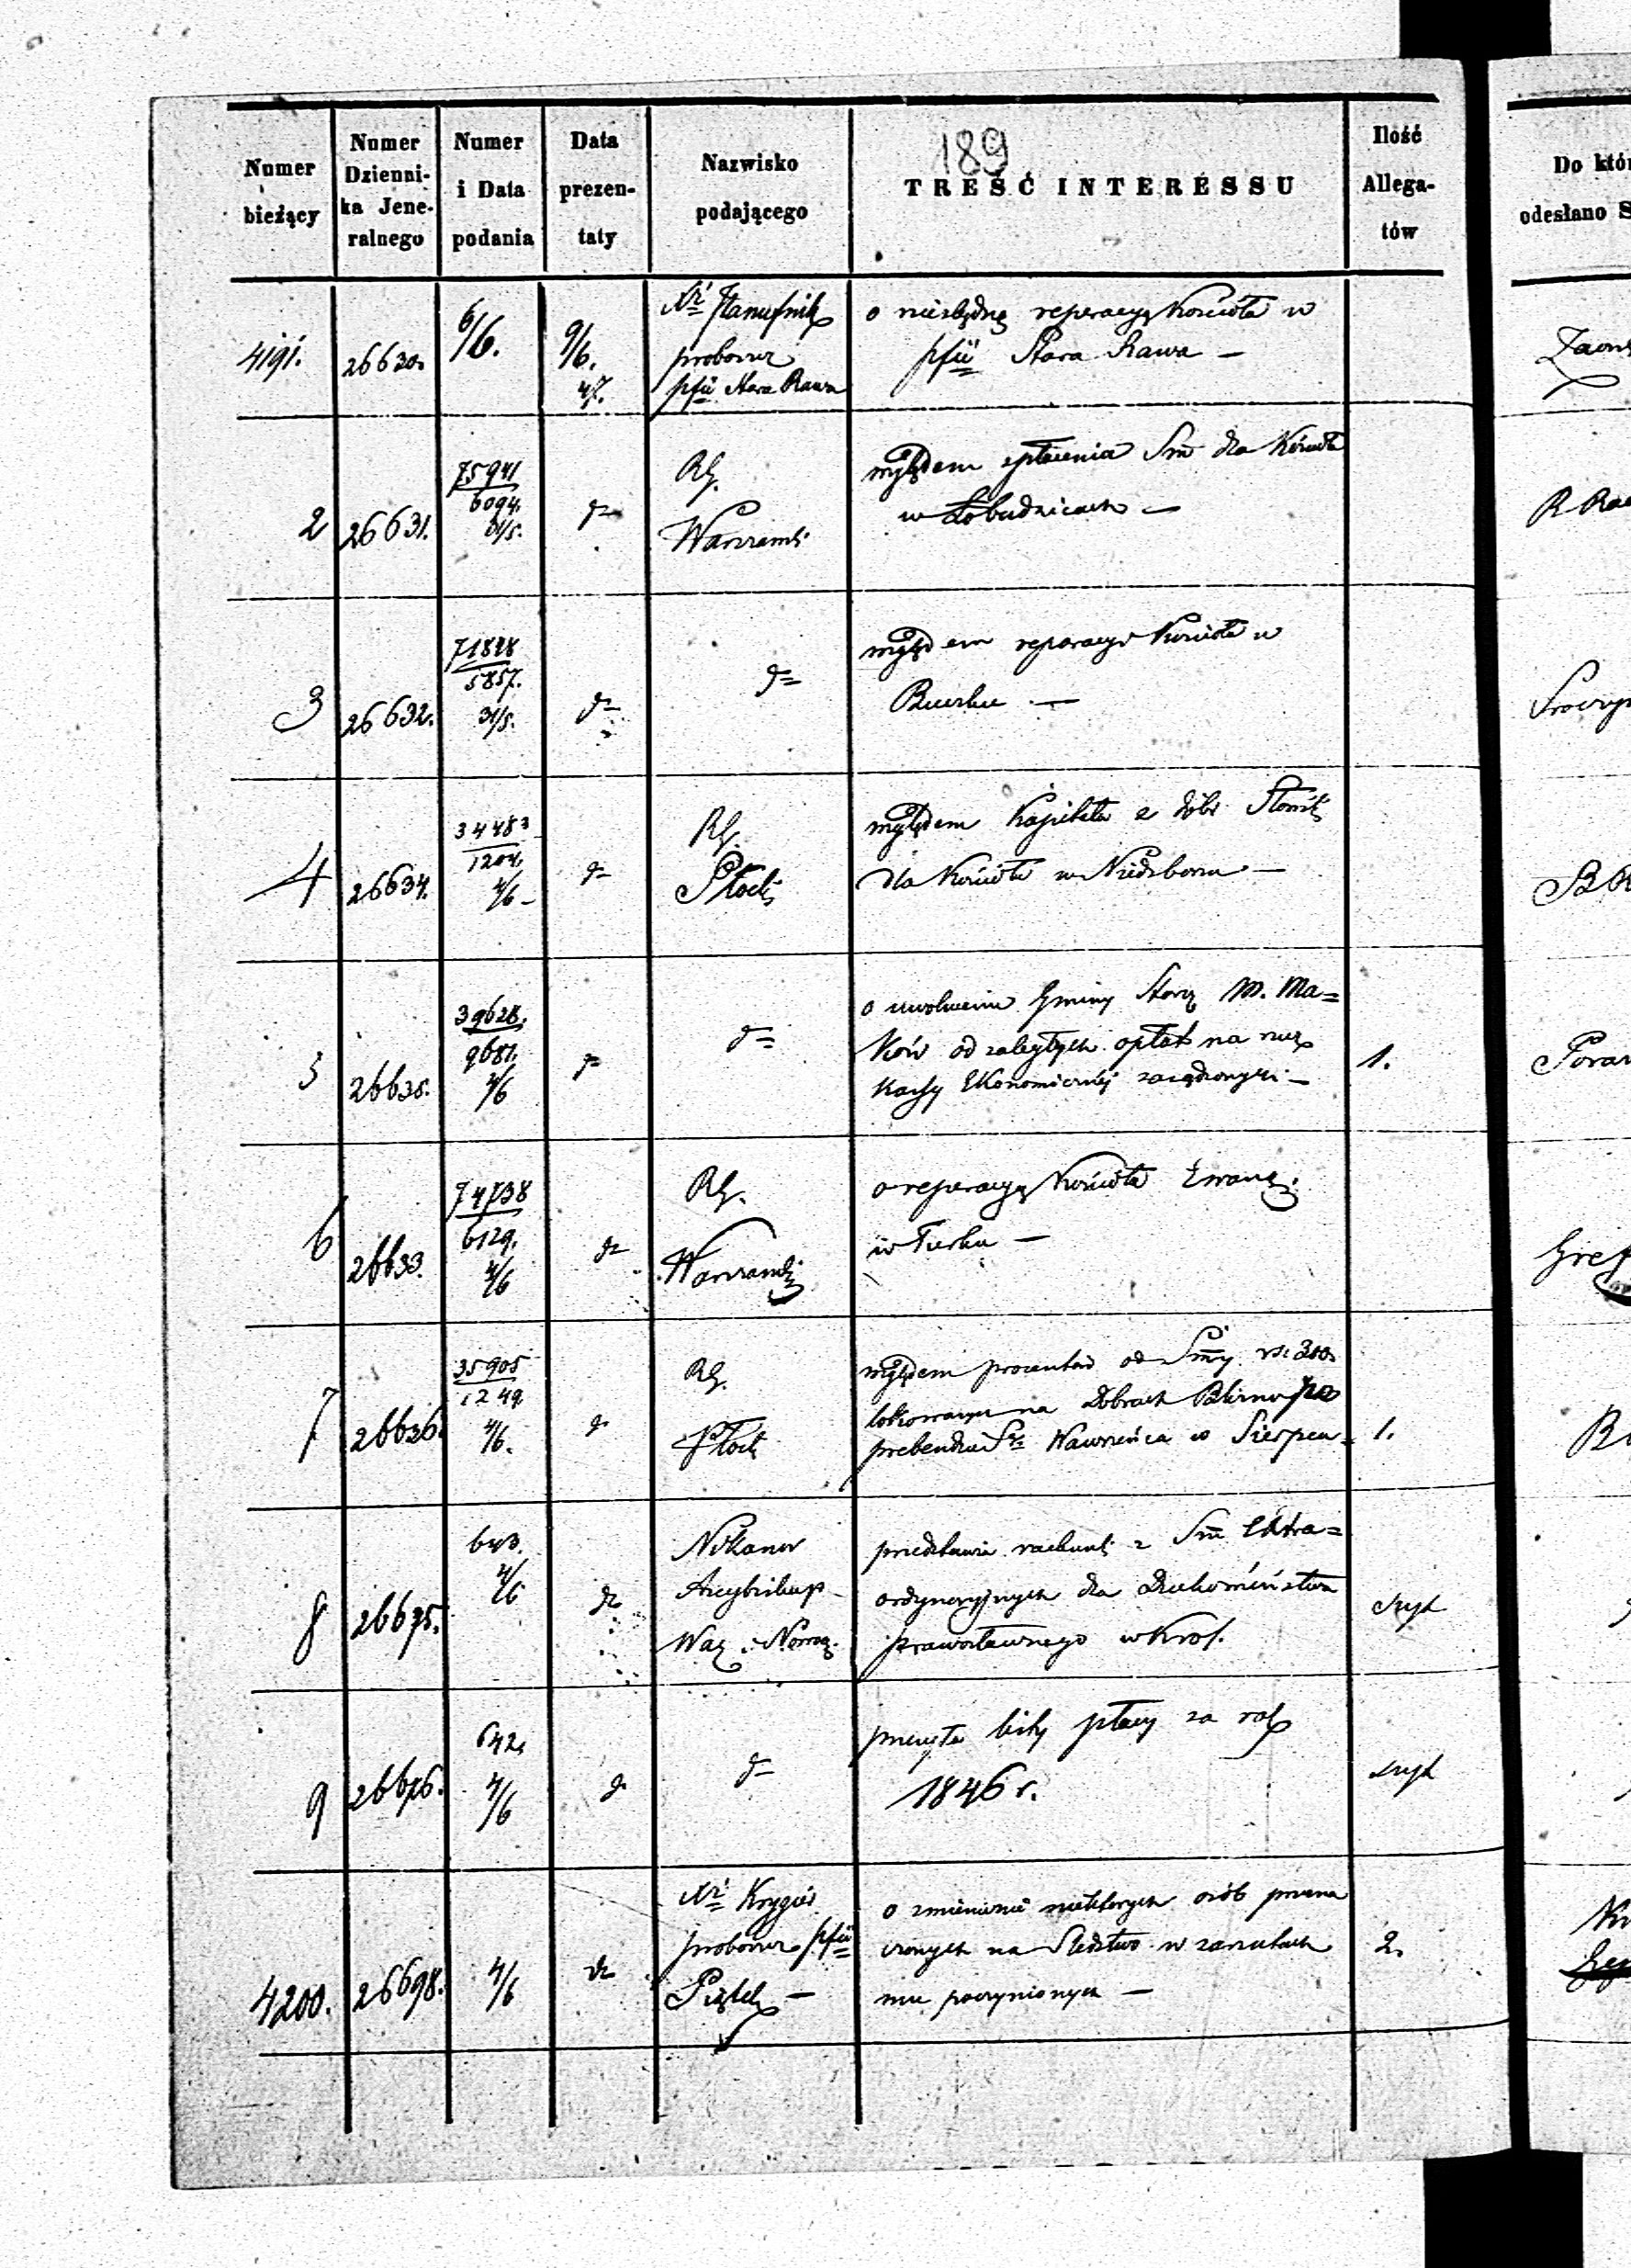 189
Numer bieżący
Numer Dzienni-
ka Jene-
ralnego
Numer i Data podania
Data prezen-
taty
Nazwisko podającego
TREŚĆ INTERESSU
Ilość Allega-
tów
Do któr
odesłano S
4191. 26630. 6/6. 9/6. 47.
proboszcz
pfii Stara Rawa
o niezbędną reperacyą Kościoła w
pfii Stara Rawa —
2 26631. 75941
6094.
31/5.
RG.
Warszawski
względem spłacenia Sm̄ dla Kościoła
w Łobudzicach —
3 26632. 71828
5857.
31/5.
względem reperacyi Kościoła w
4 26634. 34483
1204.
4/6
RG.
Płocki
względem Kapitału z dóbr
dla Kościoła w Niedzborzu —
5 26635. 39628.
9681.
4/6
o uwolnienie Gminy Starz. M. Ma=
ków od zaległych opłat na rzecz
Kassy Ekonomicznej zarządzonych — 1.
6 26633. 74738
6129.
4/6
RG.
Warszawski
o reperacyą Kościoła Ewang.
w Turku —
7 26636. 35905
1249.
4/6.
RG.
Płocki
względem procentów od Sm̄y rs. 300
lokowanych na Dobrach
prebendzie Sgo Wawrzeńca w Sierpcu — 1.
8 26675. 643.
4/6
Nikanor
Arcybiskup
Warsz. i Nowog.
przedstawia rachunki z Sm̄ Extra=
ordynaryjnych dla Duchowieństwa
prawosławnego w Król.
szyt
9 26676. 642.
4/6
przesyła listy płacy za rok
1846 r.
szyt
4200. 26698. 4/6
Xdz Krygier
proboszcz pfii
Piątek —
o zmienienie niektórych osób przezna
czonych na Śledztwo w zarzutach
mu poczynionych — 2.